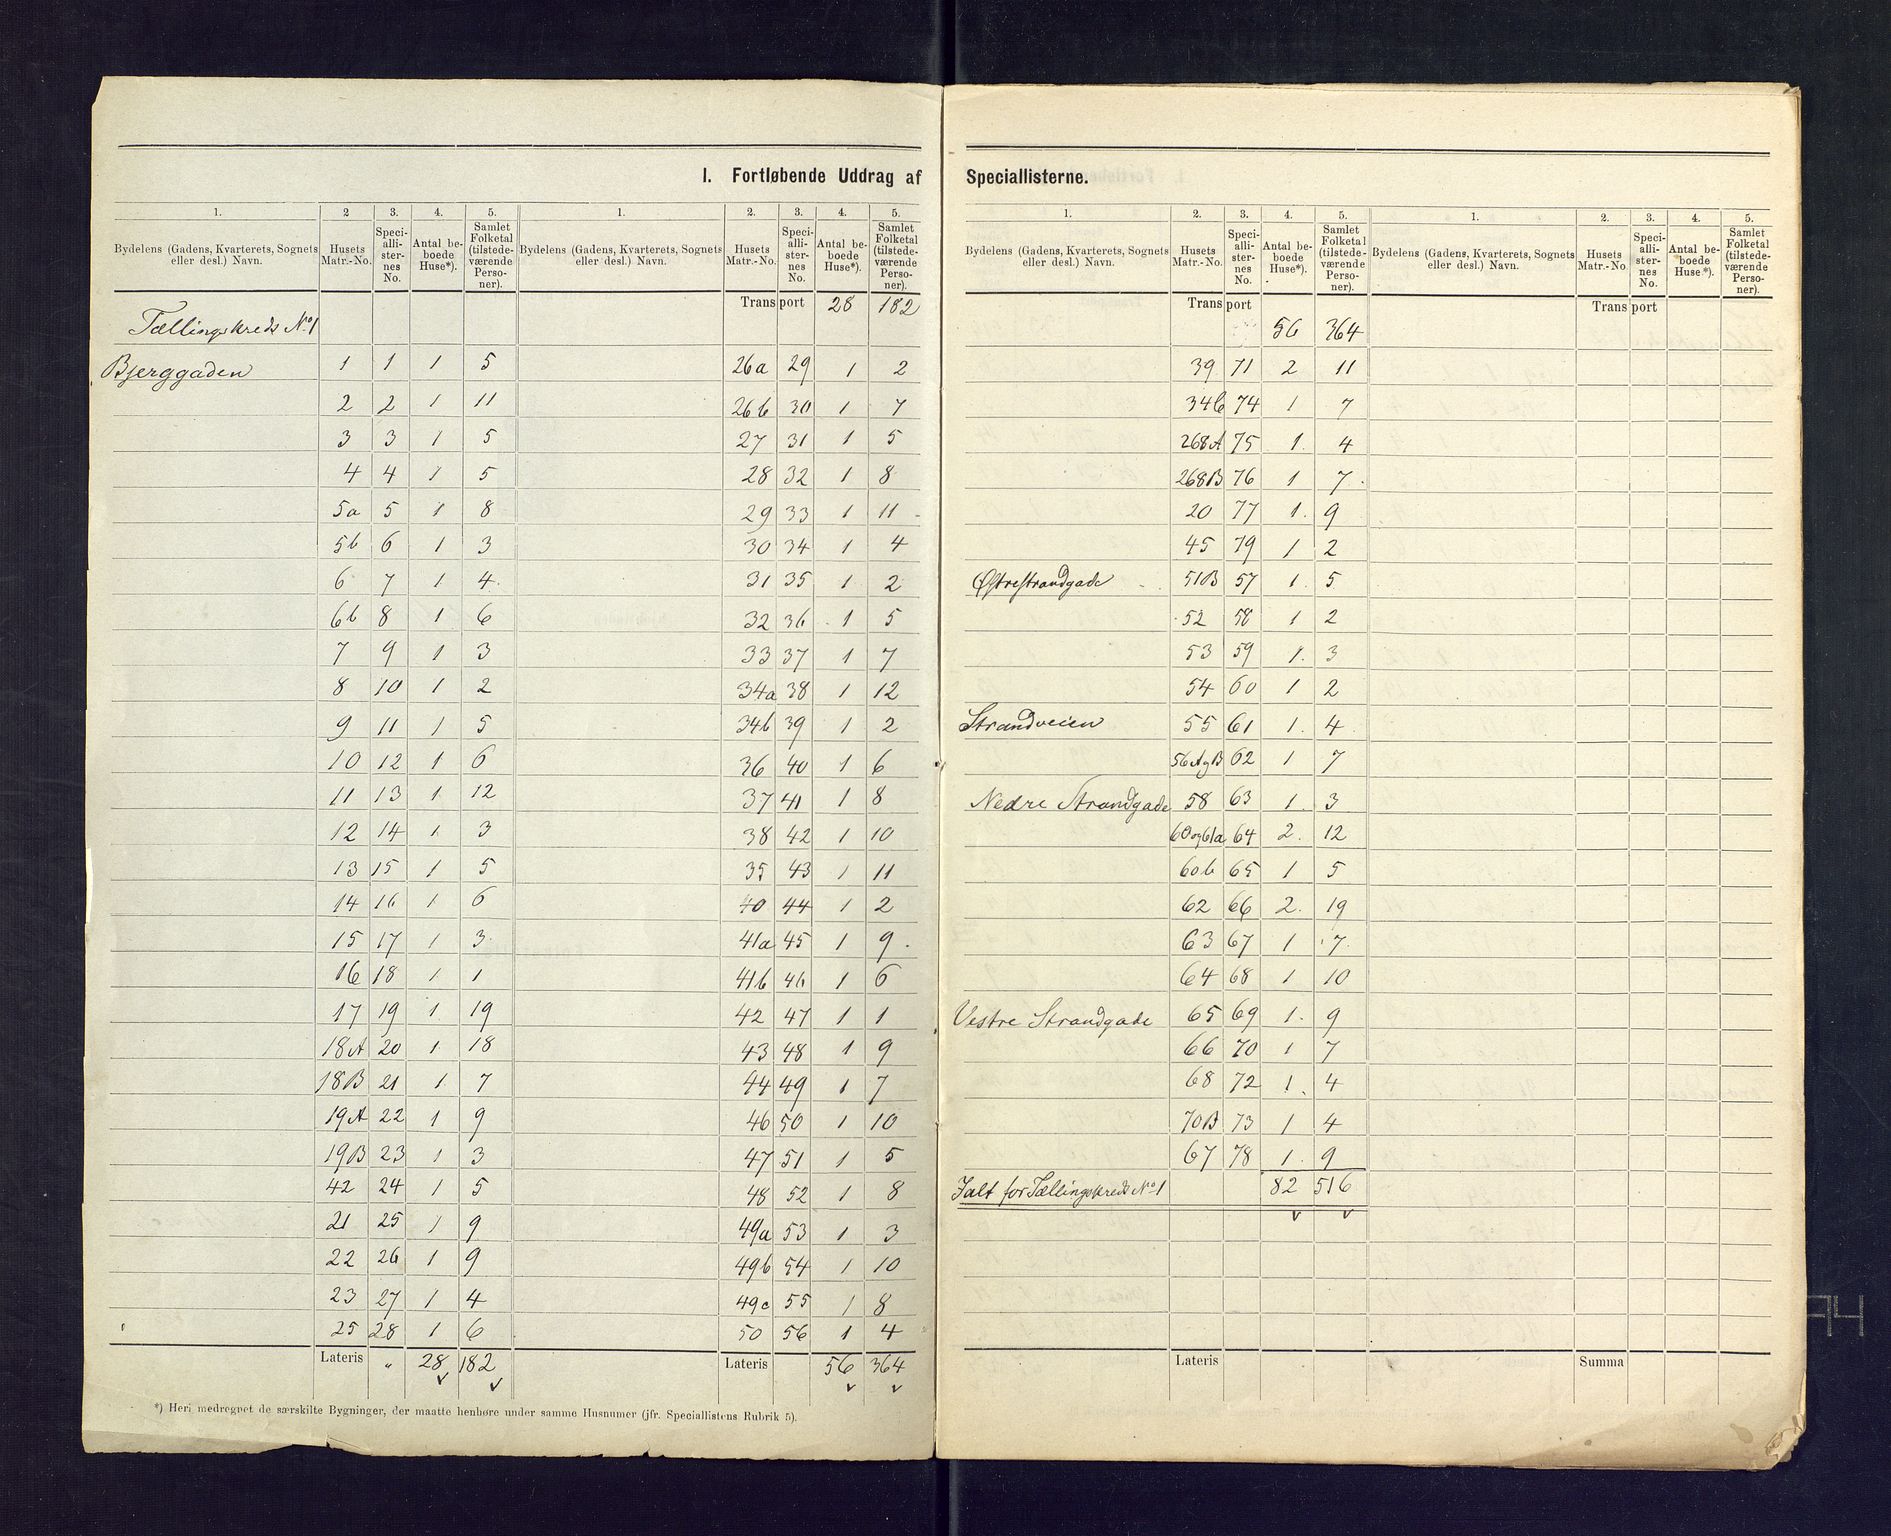 I. Fortløbende Uddrag af Speciallisterne.
1. 2 3. 4. 5. 1. 2. 3. 4. 5.
Bydelens (Gadens, Kvarterets, Sognets eller desl.) Navn. Husets Matr.-No. Speciallisternes No. Antal beboede Huse*). Samlet Folketal (tilstedeværende Personer). Bydelens (Gadens, Kvarterets, Sognets eller desl.) Navn. Husets Matr.-No. Speciallisternes No. Antal beboede Huse*). Samlet Folketal (tilstedeværende Personer).
Tællingskreds No 1
Bjerggaden 1 1 1 5
2 2 1 11
3 3 1 5
4 4 1 5
5a 5 1 8
5b 6 1 3
6 7 1 4
6b 8 1 6
7 9 1 3
8 10 1 2
9 11 1 5
10 12 1 6
11 13 1 12
12 14 1 3
13 15 1 5
14 16 1 6
15 17 1 3
16 18 1 1
17 19 1 19
18A 20 1 18
18B 21 1 7
19A 22 1 9
19B 23 1 3
42 24 1 5
21 25 1 9
22 26 1 9
23 27 1 4
25 28 1 6
Lateris " 28 182
Transport 28 182
26a 29 1 2
26b 30 1 7
27 31 1 5
28 32 1 8
29 33 1 11
30 34 1 4
31 35 1 2
32 36 1 5
33 37 1 7
34a 38 1 12
34b 39 1 2
36 40 1 6
37 41 1 8
38 42 1 10
35 43 1 11
40 44 1 2
41a 45 1 9
41b 46 1 6
42 47 1 1
43 48 1 9
44 49 1 7
46 50 1 10
47 51 1 5
48 52 1 8
49a 53 1 3
49b 54 1 10
49c 55 1 8
50 56 1 4
Lateris 56 364
*) Heri medregnet de særskilte Bygninger, der maatte henhøre under samme Husnumer (jfr. Speciallistens Rubrik 5).
1. 2. 3. 4. 5. 1. 2. 3. 4. 5.
Bydelens (Gadens, Kvarterets, Sognets eller desl.) Navn. Husets Matr.-No. Speciallisternes No. Antal beboede Huse*). Samlet Folketal (tilstedeværende Personer). Bydelens (Gadens, Kvarterets, Sognets eller desl.) Navn. Husets Matr.-No. Speciallisternes No. Antal beboede Huse*). Samlet Folketal (tilstedeværende Personer).
Transport 56 364
39 71 2 11
34c 74 1 7
268A 75 1 4
268B 76 1 7
20 77 1 9
45 79 1 2
Østre Strandgade 51B 57 1 5
52 58 1 2
53 59 1 3
54 60 1 2
Strandveien 55 61 1 4
56AgB 62 1 7
Nedre Strandgade 58 63 1 3
60og61a 64 2 12
60b 65 1 5
62 66 2 19
63 67 1 7
64 68 1 10
Vestre Strandgade 65 69 1 9
66 70 1 7
68 72 1 4
70B 73 1 4
67 78 1 9
Ialt for Tællingskreds No 1 82 516
Lateris
Transport
Summa